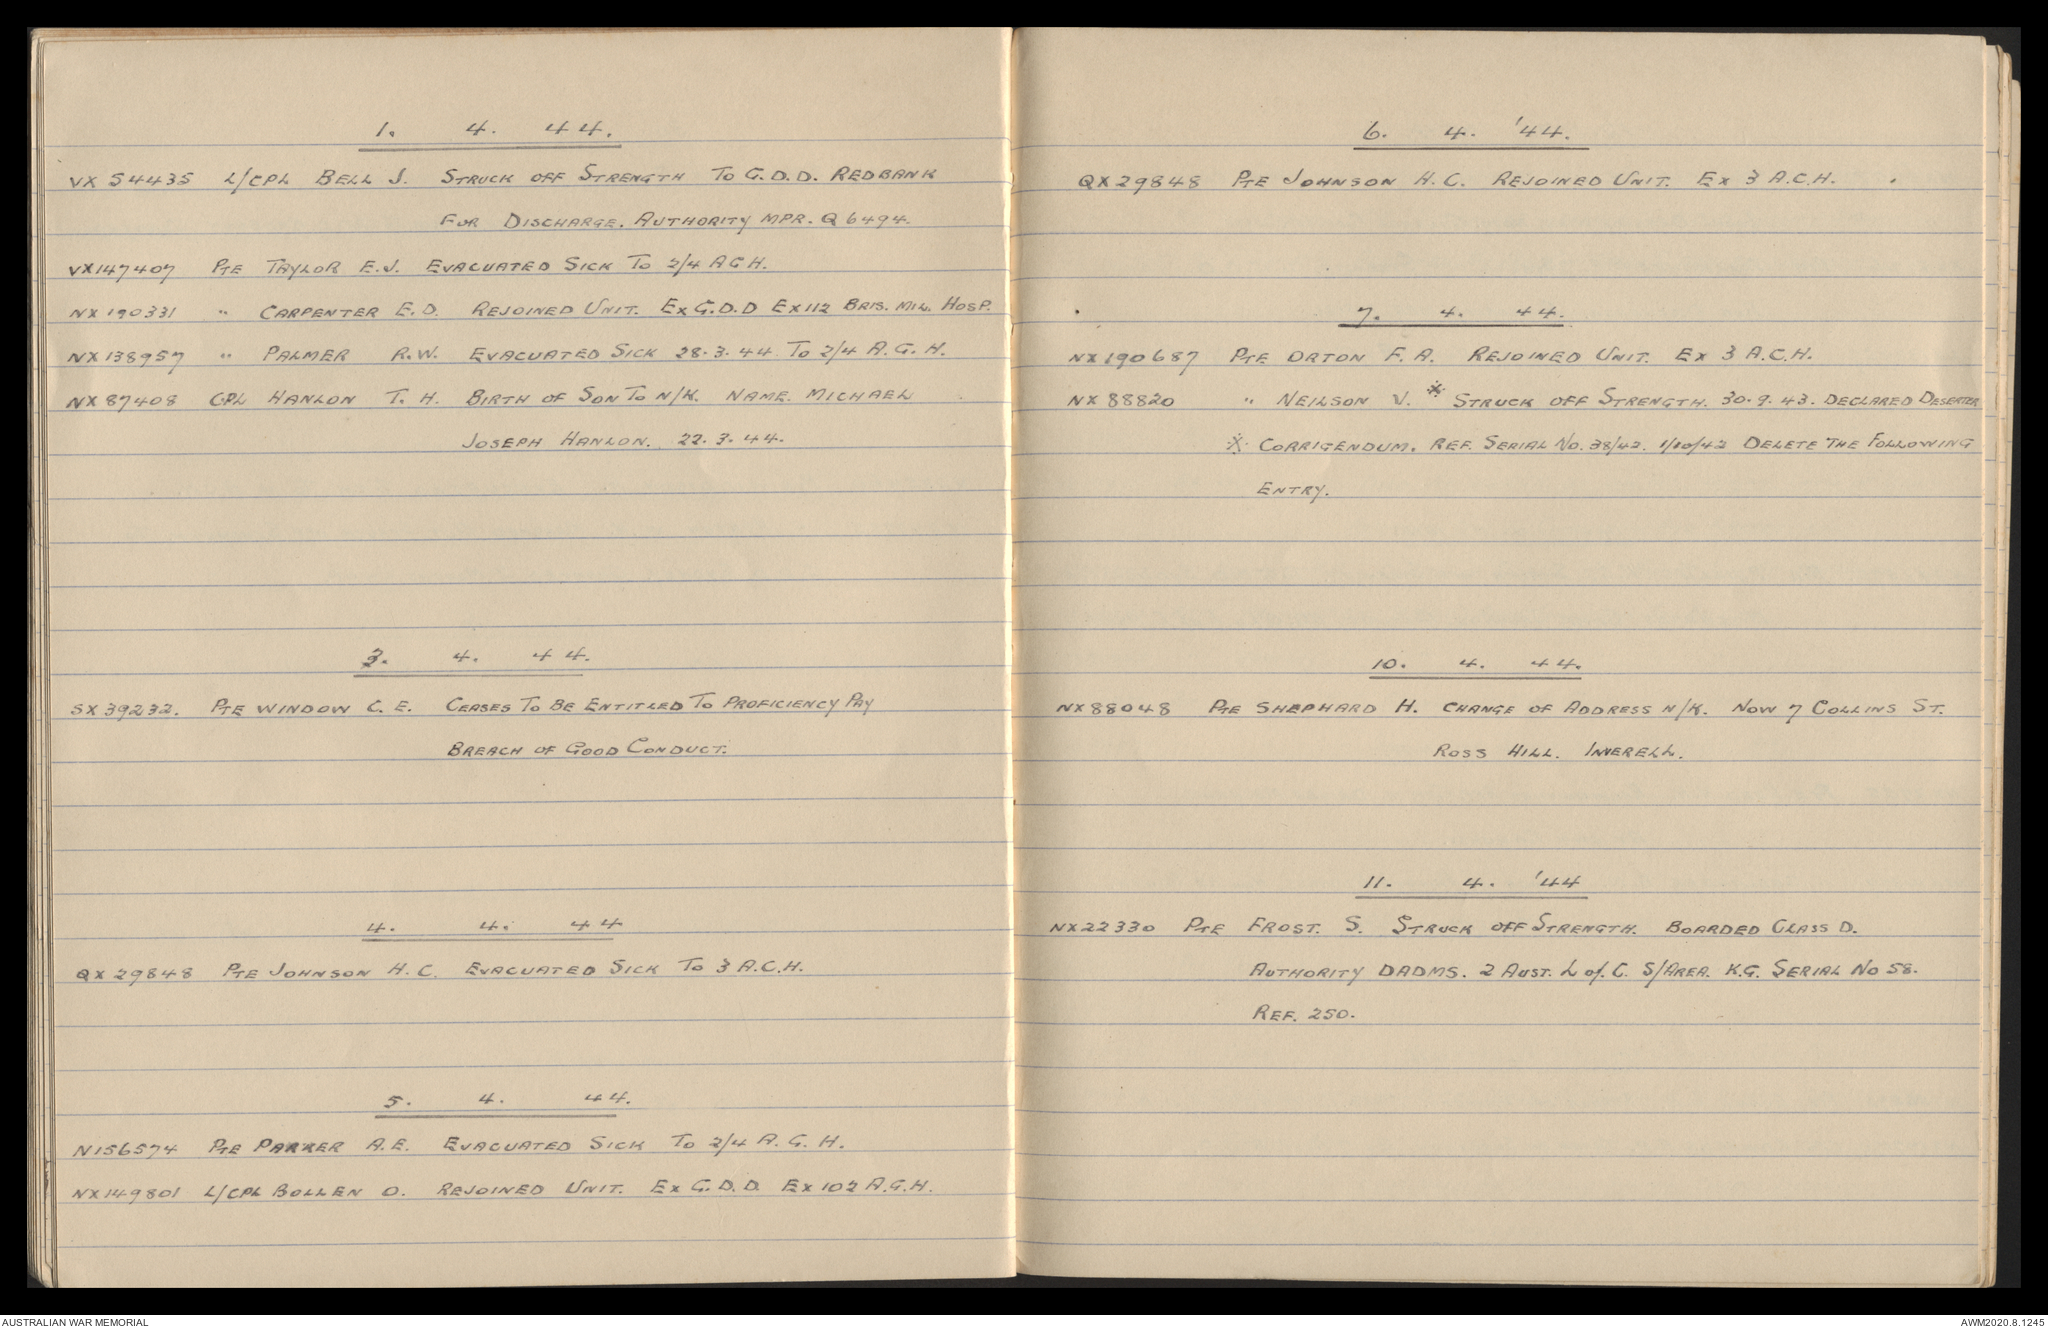 1. 4. 44.
VX 54435 L/CPL BELL J. STRUCK OFF STRENGTH TO G.D.D. REDBANK
FOR DISCHARGE. AUTHORITY MPR. Q 6494.
VX147407 PTE TAYLOR E.J. EVACUATED SICK TO 2/4 AGH.
NX190331 " CARPENTER E.D. REJOINED UNIT. EX G.D.D EX 112 BRIS. MIL. HOSP.
NX138957 " PALMER R.W. EVACUATED SICK 28.3.44 TO 2/4 A.G.H.
NX87408 CPL HANLON T.H. BIRTH OF SON TO N/K. NAME. MICHAEL
JOSEPH HANLON. 22.3.44.
3. 4. 44.
SX39232. PTE WINDOW C.E. CEASES TO BE ENTITLED TO PROFICIENCY PAY
BREACH OF GOOD CONDUCT.
4. 4. 44
QX29848 PTE JOHNSON H.C. EVACUATED SICK TO 3 A.C.H.
5. 4. 44.
N156574 PTE PARKER A.E. EVACUATED SICK TO 2/4 A.G.H.
NX149801 L/CPL BOLLEN O. REJOINED UNIT. EX G.D.D. EX 102 A.G.H.
6. 4. '44.
QX29848 PTE JOHNSON H.C. REJOINED UNIT. EX 3 A.C.H.
7. 4. 44.
NX190687 PTE ORTON F.A. REJOINED UNIT. EX 3 A.C.H.
NX88820 " NEILSON V. * STRUCK OFF STRENGTH. 30.9.43. DECLARED DESERTER
* CORRIGENDUM. REF. SERIAL NO. 38/42. 1/10/42 DELETE THE FOLLOWING
ENTRY.
10. 4. 44.
NX88048 PTE SHEPHARD H. CHANGE OF ADDRESS N/K. NOW 7 COLLINS ST.
ROSS HILL. INVERELL.
11. 4. '44
NX22330 PTE FROST. S. STRUCK OFF STRENGTH. BOARDED CLASS D.
AUTHORITY DADMS. 2 AUST. L of. C. S/AREA. K.G. SERIAL NO 58.
REF. 250.
AUSTRALIAN WAR MEMORIAL
AWM2020.8.1245